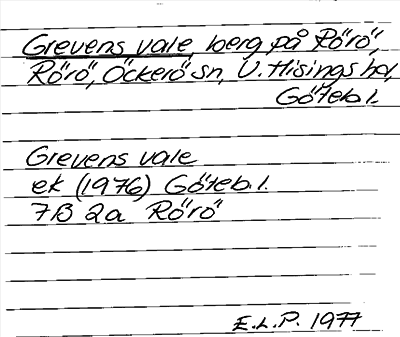 Grevens vale, berg på Rörö,
Rörö, Öckerö sn, V. Hisings hd,
Göteb. l.
Grevens vale
ek (1976) Göteb. l.
7B 2a Rörö
E.L.P. 1977